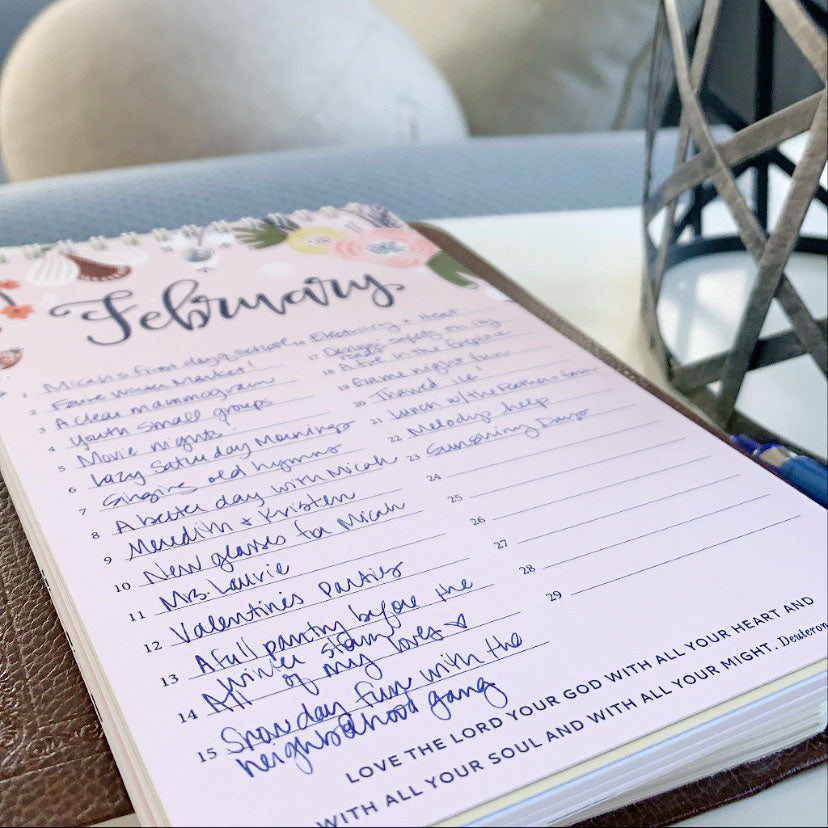 February
1 Micah's first day @ school
2 Faire Winter Market!
3 A clear mammogram
4 Youth small groups
5 Movie nights
6 Lazy Saturday Mornings
7 Singing old hymns
8 A better day with Micah
9 Meredith + Kristen
10 New glasses for Micah
11 Mrs. Laurie
12 Valentine's Parties
13 A full pantry before the
winter storm
14 All of my loves
15 Snow day fun with the
neighborhood gang
16 Electricity + Heat
17 Safety on icy
roads
18 A fire in the fireplace
19 Game night fun
20 Thawed ice!
21 Lunch w/ the
22 Melody's help
23 Sunshiny Days
24
25
26
27
28
29
LOVE THE LORD YOUR GOD WITH ALL YOUR HEART AND
WITH ALL YOUR SOUL AND WITH ALL YOUR MIGHT. Deuteron